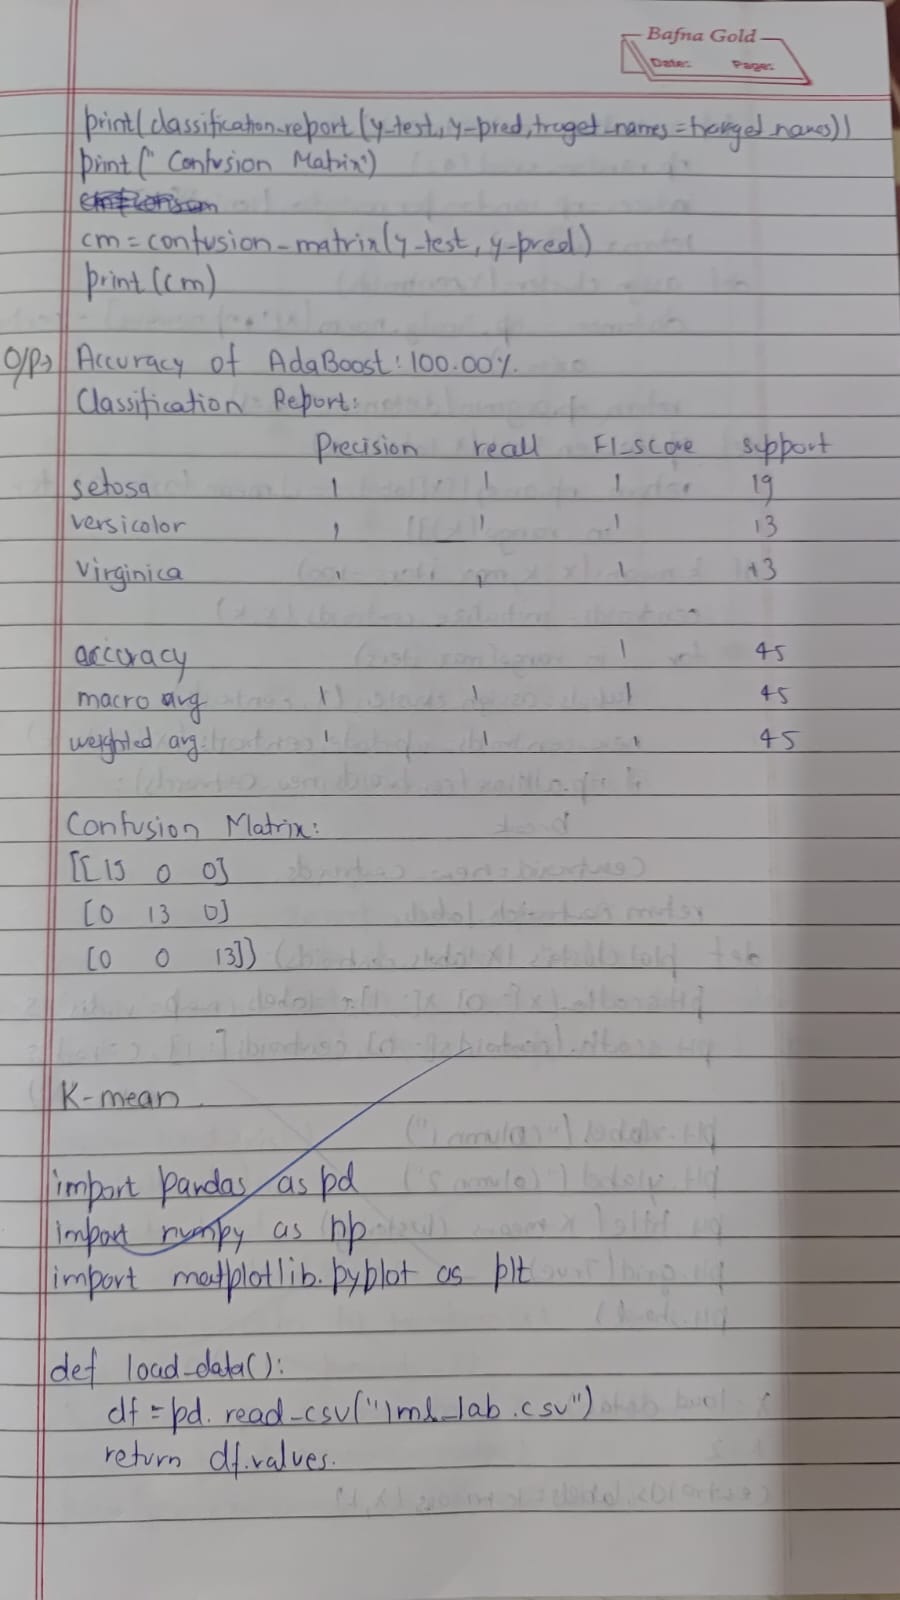 Bafna Gold
Date: Page:
print(classification_report(y-test, y-pred, traget_names = target_names))
print(" Confusion Matrix")
cm = confusion-matrix(y-test, y-pred)
print(cm)
O/P→ Accuracy of AdaBoost: 100.00%.
Classification Report:
Precision reall F1-score support
setosa 1 1 1 19
versicolor 1 1 1 13
Virginica 1 1 1 13
accuracy 1 45
macro avg 1 1 1 45
weighted avg: 1 1 1 45
Confusion Matrix:
[[19 0 0]
[0 13 0]
[0 0 13]]
K-mean
import pandas as pd
import numpy as np
import matplotlib.pyplot as plt
def load_data():
df = pd. read_csv(" lab.csv")
return df.values.